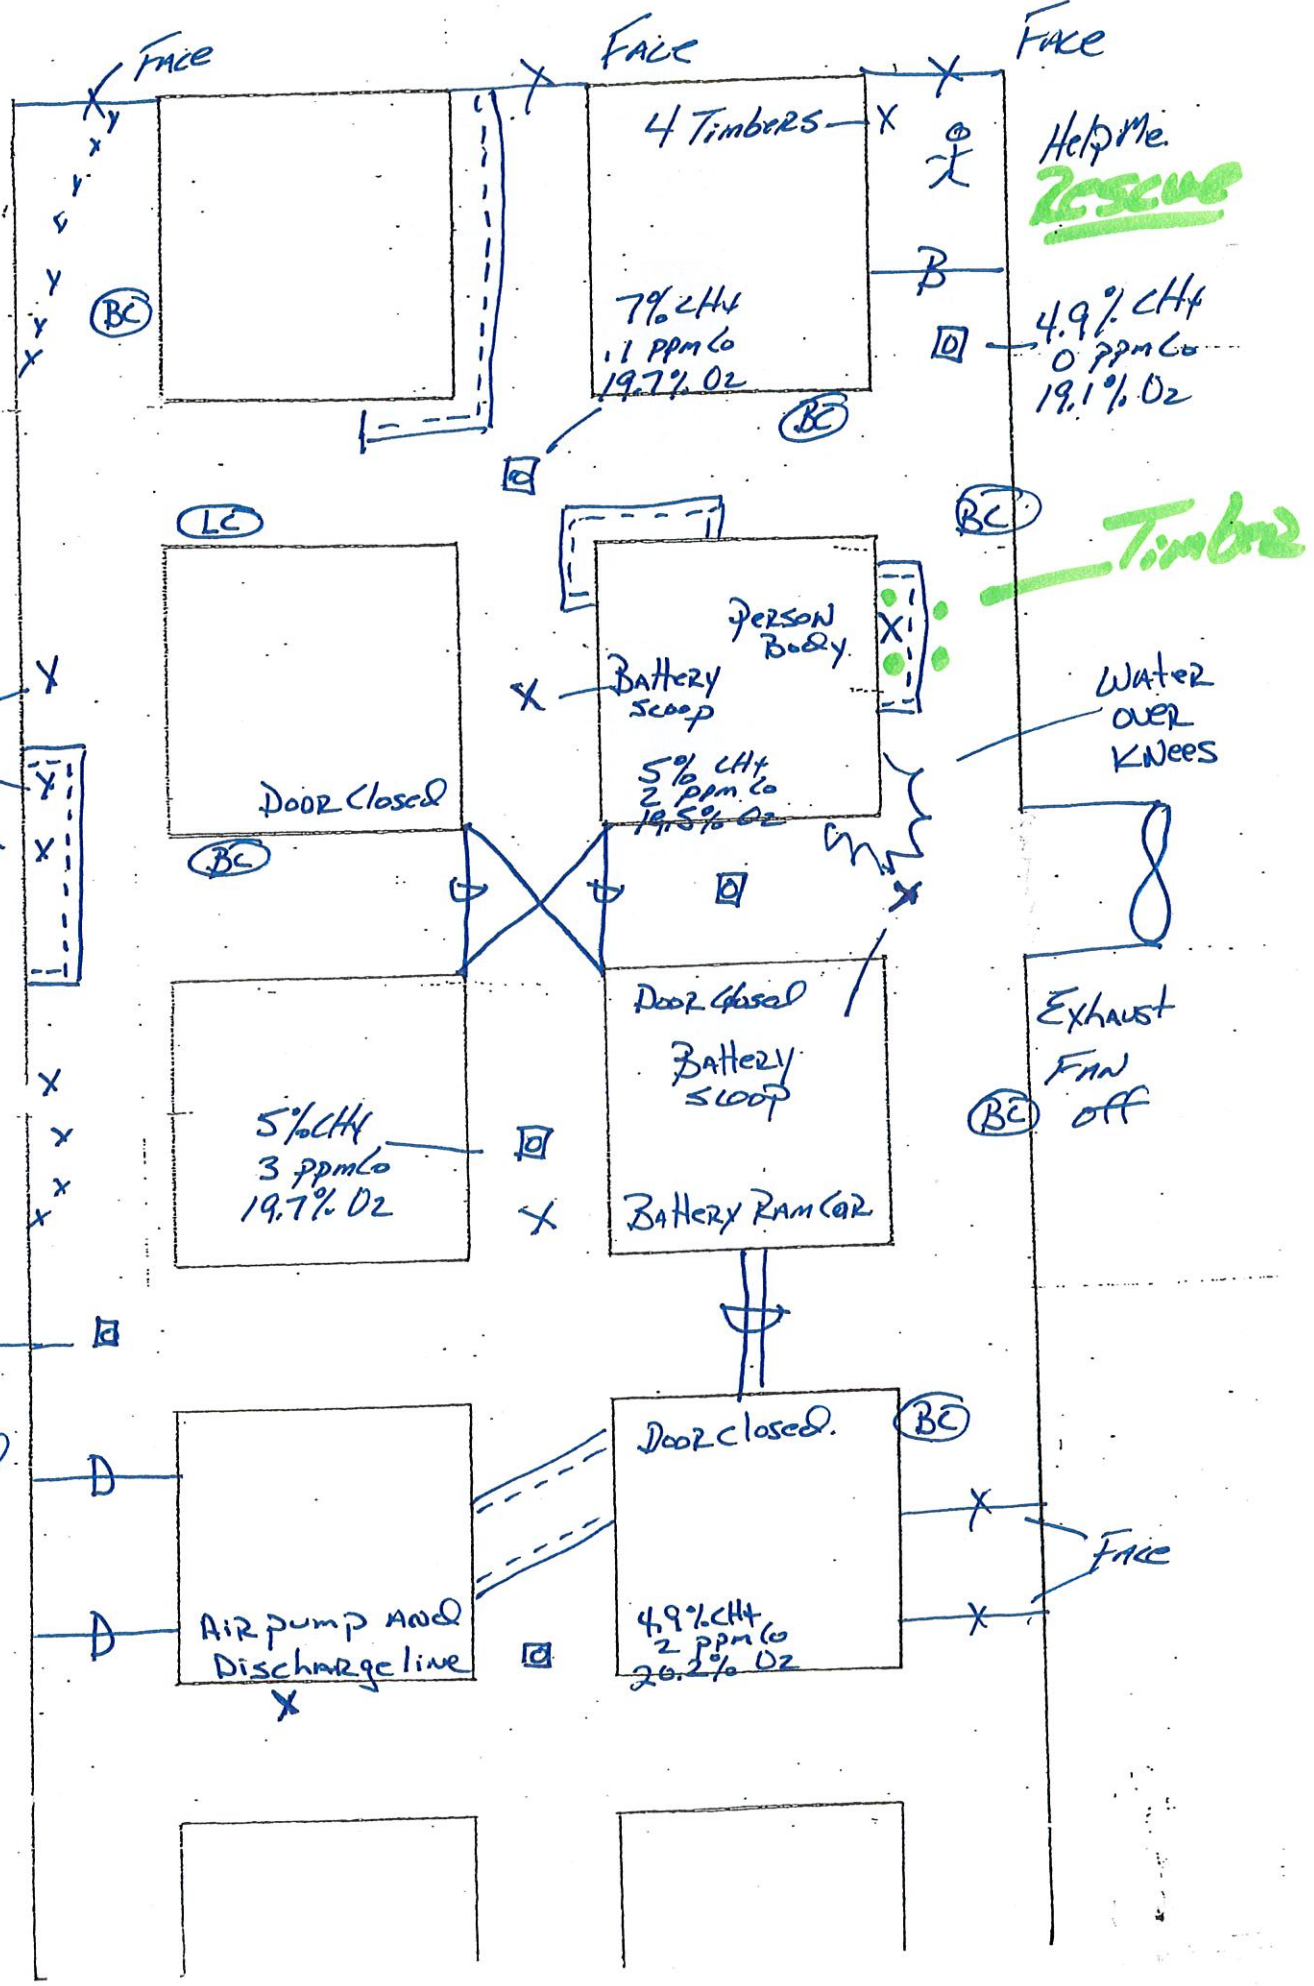 Face
Face
Face
4 Timbers
Help Me.
Rescue
B
BC
7% CH4
.1 ppm Co
19.7% O2
4.9% CH4
0 ppm Co
19.1% O2
BC
LC
BC
Timber
Person
Body
Battery
scoop
Water
over
Knees
5% CH4
2 ppm Co
19.5% O2
Door Closed
BC
Door Closed
Battery
scoop
Exhaust
Fan
off
BC
5% CH4
3 ppm Co
19.7% O2
Battery Ram Car
Door Closed.
BC
D
Face
Air pump and
Discharge line
D
4.9% CH4
2 ppm Co
20.2% O2